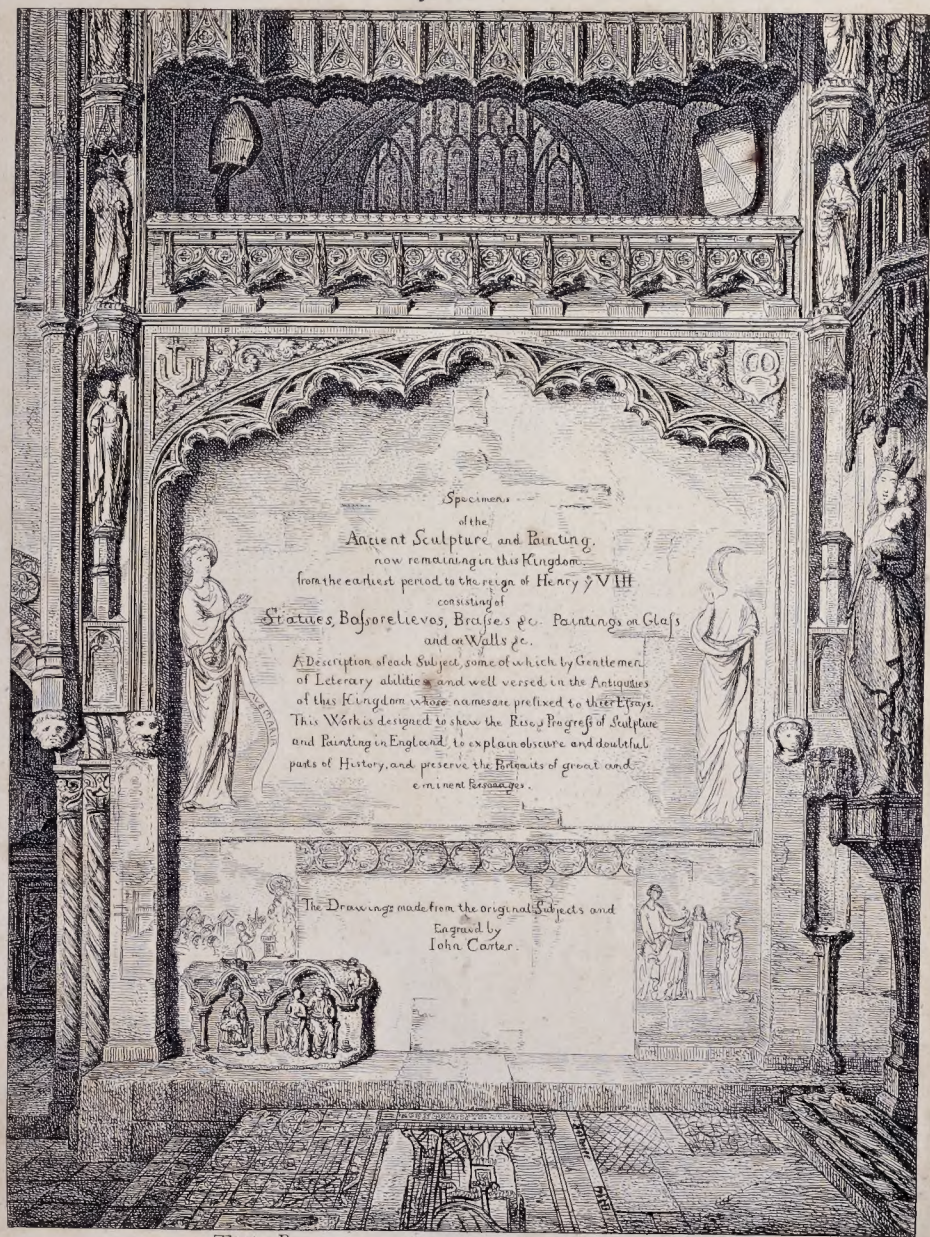 Specimens
of the
Ancient Sculpture and Painting,
now remaining in this Kingdom.
from the earliest period to the reign of Henry ẙ VIII
consisting of
Statues, Baſsorelievos, Braſses &c. Paintings on Glaſs
and on Walls &c.
A Description of each Subject, some of which by Gentlemen
of Leterary abilities and well versed in the Antiquities
of this Kingdom whose names are prefixed to thier Eſsays.
This Work is designed to shew the Rise & Progreſs of Sculpture
and Painting in England, to explain obscure and doubtful
parts of History, and preserve the Portraits of great and
eminent Personages.
The Drawings made from the original Subjects and
Engrav'd by
Iohn Carter.